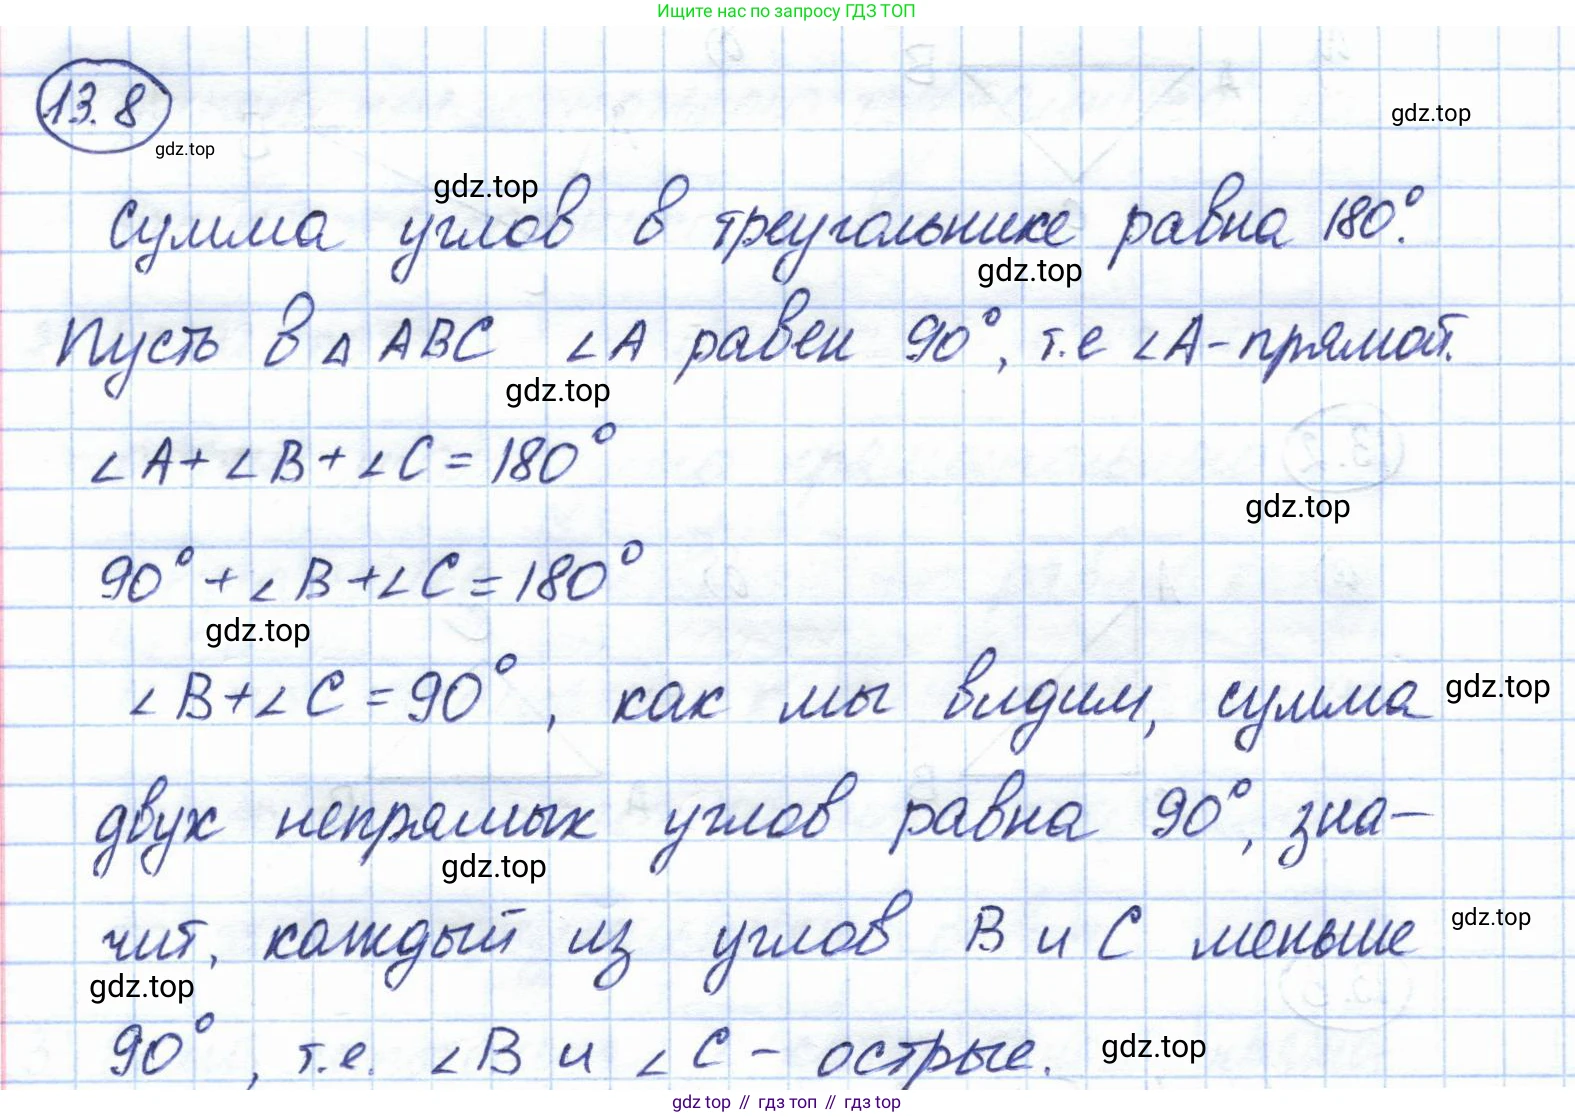 Ищите нас по запросу ГДЗ ТОП
13.8
gdz.top
gdz.top
gdz.top
Сумма углов в треугольнике равна 180°.
gdz.top
Пусть в △ ABC ∠A равен 90°, т.е ∠A - прямой.
gdz.top
∠A + ∠B + ∠C = 180°
gdz.top
90° + ∠B + ∠C = 180°
gdz.top
∠B + ∠C = 90°, как мы видим, сумма
gdz.top
двух непрямых углов равна 90°, зна-
gdz.top
чит, каждый из углов B и C меньше
gdz.top
gdz.top
90°, т.е. ∠B и ∠C - острые.
gdz.top
gdz top // гдз топ // гдз top